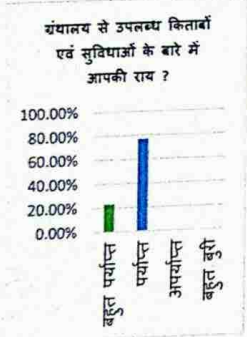 ग्रंथालय से उपलब्ध किताबों
एवं सुविधाओं के बारे में
आपकी राय ?
100.00%
80.00%
60.00%
40.00%
20.00%
0.00%
बहुत पर्याप्त
पर्याप्त
अपर्याप्त
बहुत बुरी